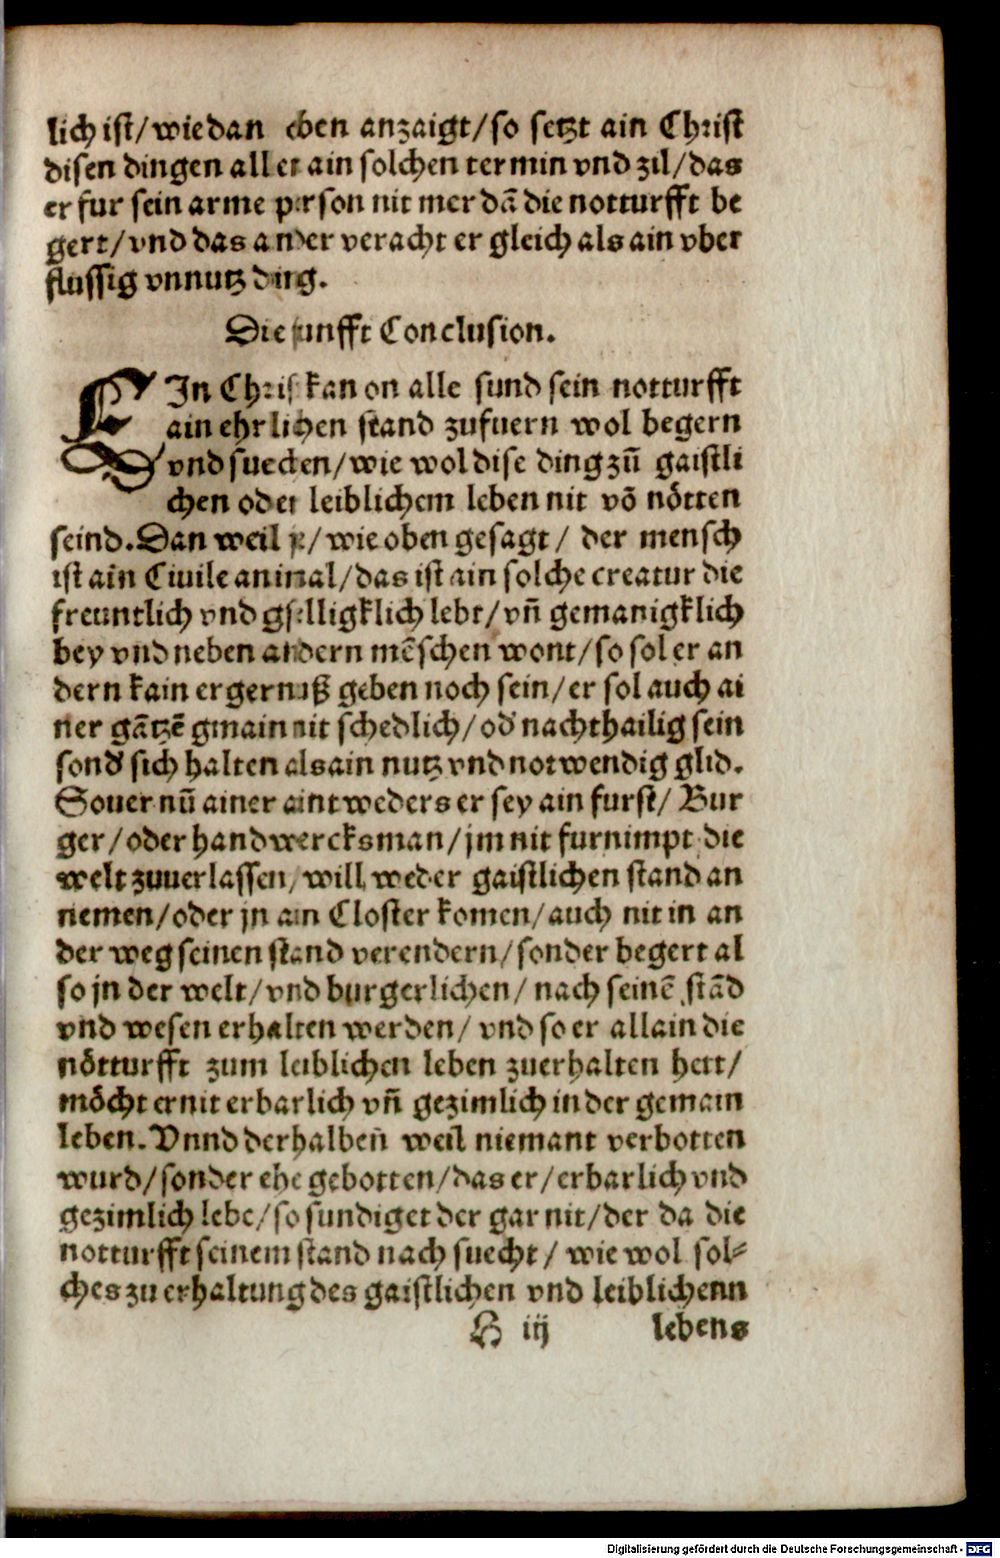 lich ist/wie dan eben anzaigt/so setzt ain Christ
disen dingen aller ain solchen termin vnd zil/das
er fur sein arme person nit mer dā die notturfft be
gert/vnd das ander veracht er gleich als ain vber
flussig vnnutz ding.
Die funfft Conclusion.
EIn Christ kan on alle sund sein notturfft
ain ehrlichen stand zufuern wol begern
vnd suechen/wie wol dise ding zū gaistli
chen oder leiblichem leben nit võ nôtten
seind. Dan weil je/wie oben gesagt/ der mensch
ist ain Ciuile animal/das ist ain solche creatur die
freuntlich vnd gselligklich lebt/vñ gemanigklich
bey vnd neben andern mēschen wont/so sol er an
dern kain ergernuß geben noch sein/er sol auch ai
ner gātzē gmain nit schedlich/od' nachthailig sein
sond' sich halten als ain nutz vnd notwendig glid.
Souer nū ainer aintweders er sey ain furst/ Bur
ger/oder handwercksman/jm nit furnimpt die
welt zuuerlassen/will weder gaistlichen stand an
nemen/oder jn ain Closter komen/auch nit in an
der weg seinen stand verendern/sonder begert al
so jn der welt/vnd burgerlichen/ nach seinē stād
vnd wesen erhalten werden/ vnd so er allain die
nôtturfft zum leiblichen leben zuerhalten hett/
môcht er nit erbarlich vñ gezimlich in der gemain
leben. Vnnd derhalben weil niemant verbotten
wurd/sonder ehe gebotten/das er/erbarlich vnd
gezimlich lebe/so sundiget der gar nit/der da die
notturfft seinem stand nach suecht/ wie wol sol⸗
ches zu erhaltung des gaistlichen vnd leiblichenn
H iij lebens
Digitalisierung gefördert durch die Deutsche Forschungsgemeinschaft - DFG